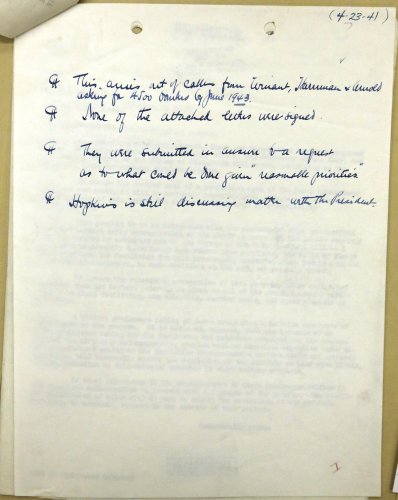 (4-23-41)
This arises out of cables from Winant, Harriman & Arnold
asking for 4500 bombers by June 1943.
None of the attached letters were signed.
They were submitted in answer to a request
as to what could be done given "reasonable priorities"
Hopkins is still discussing matter with the President.
I